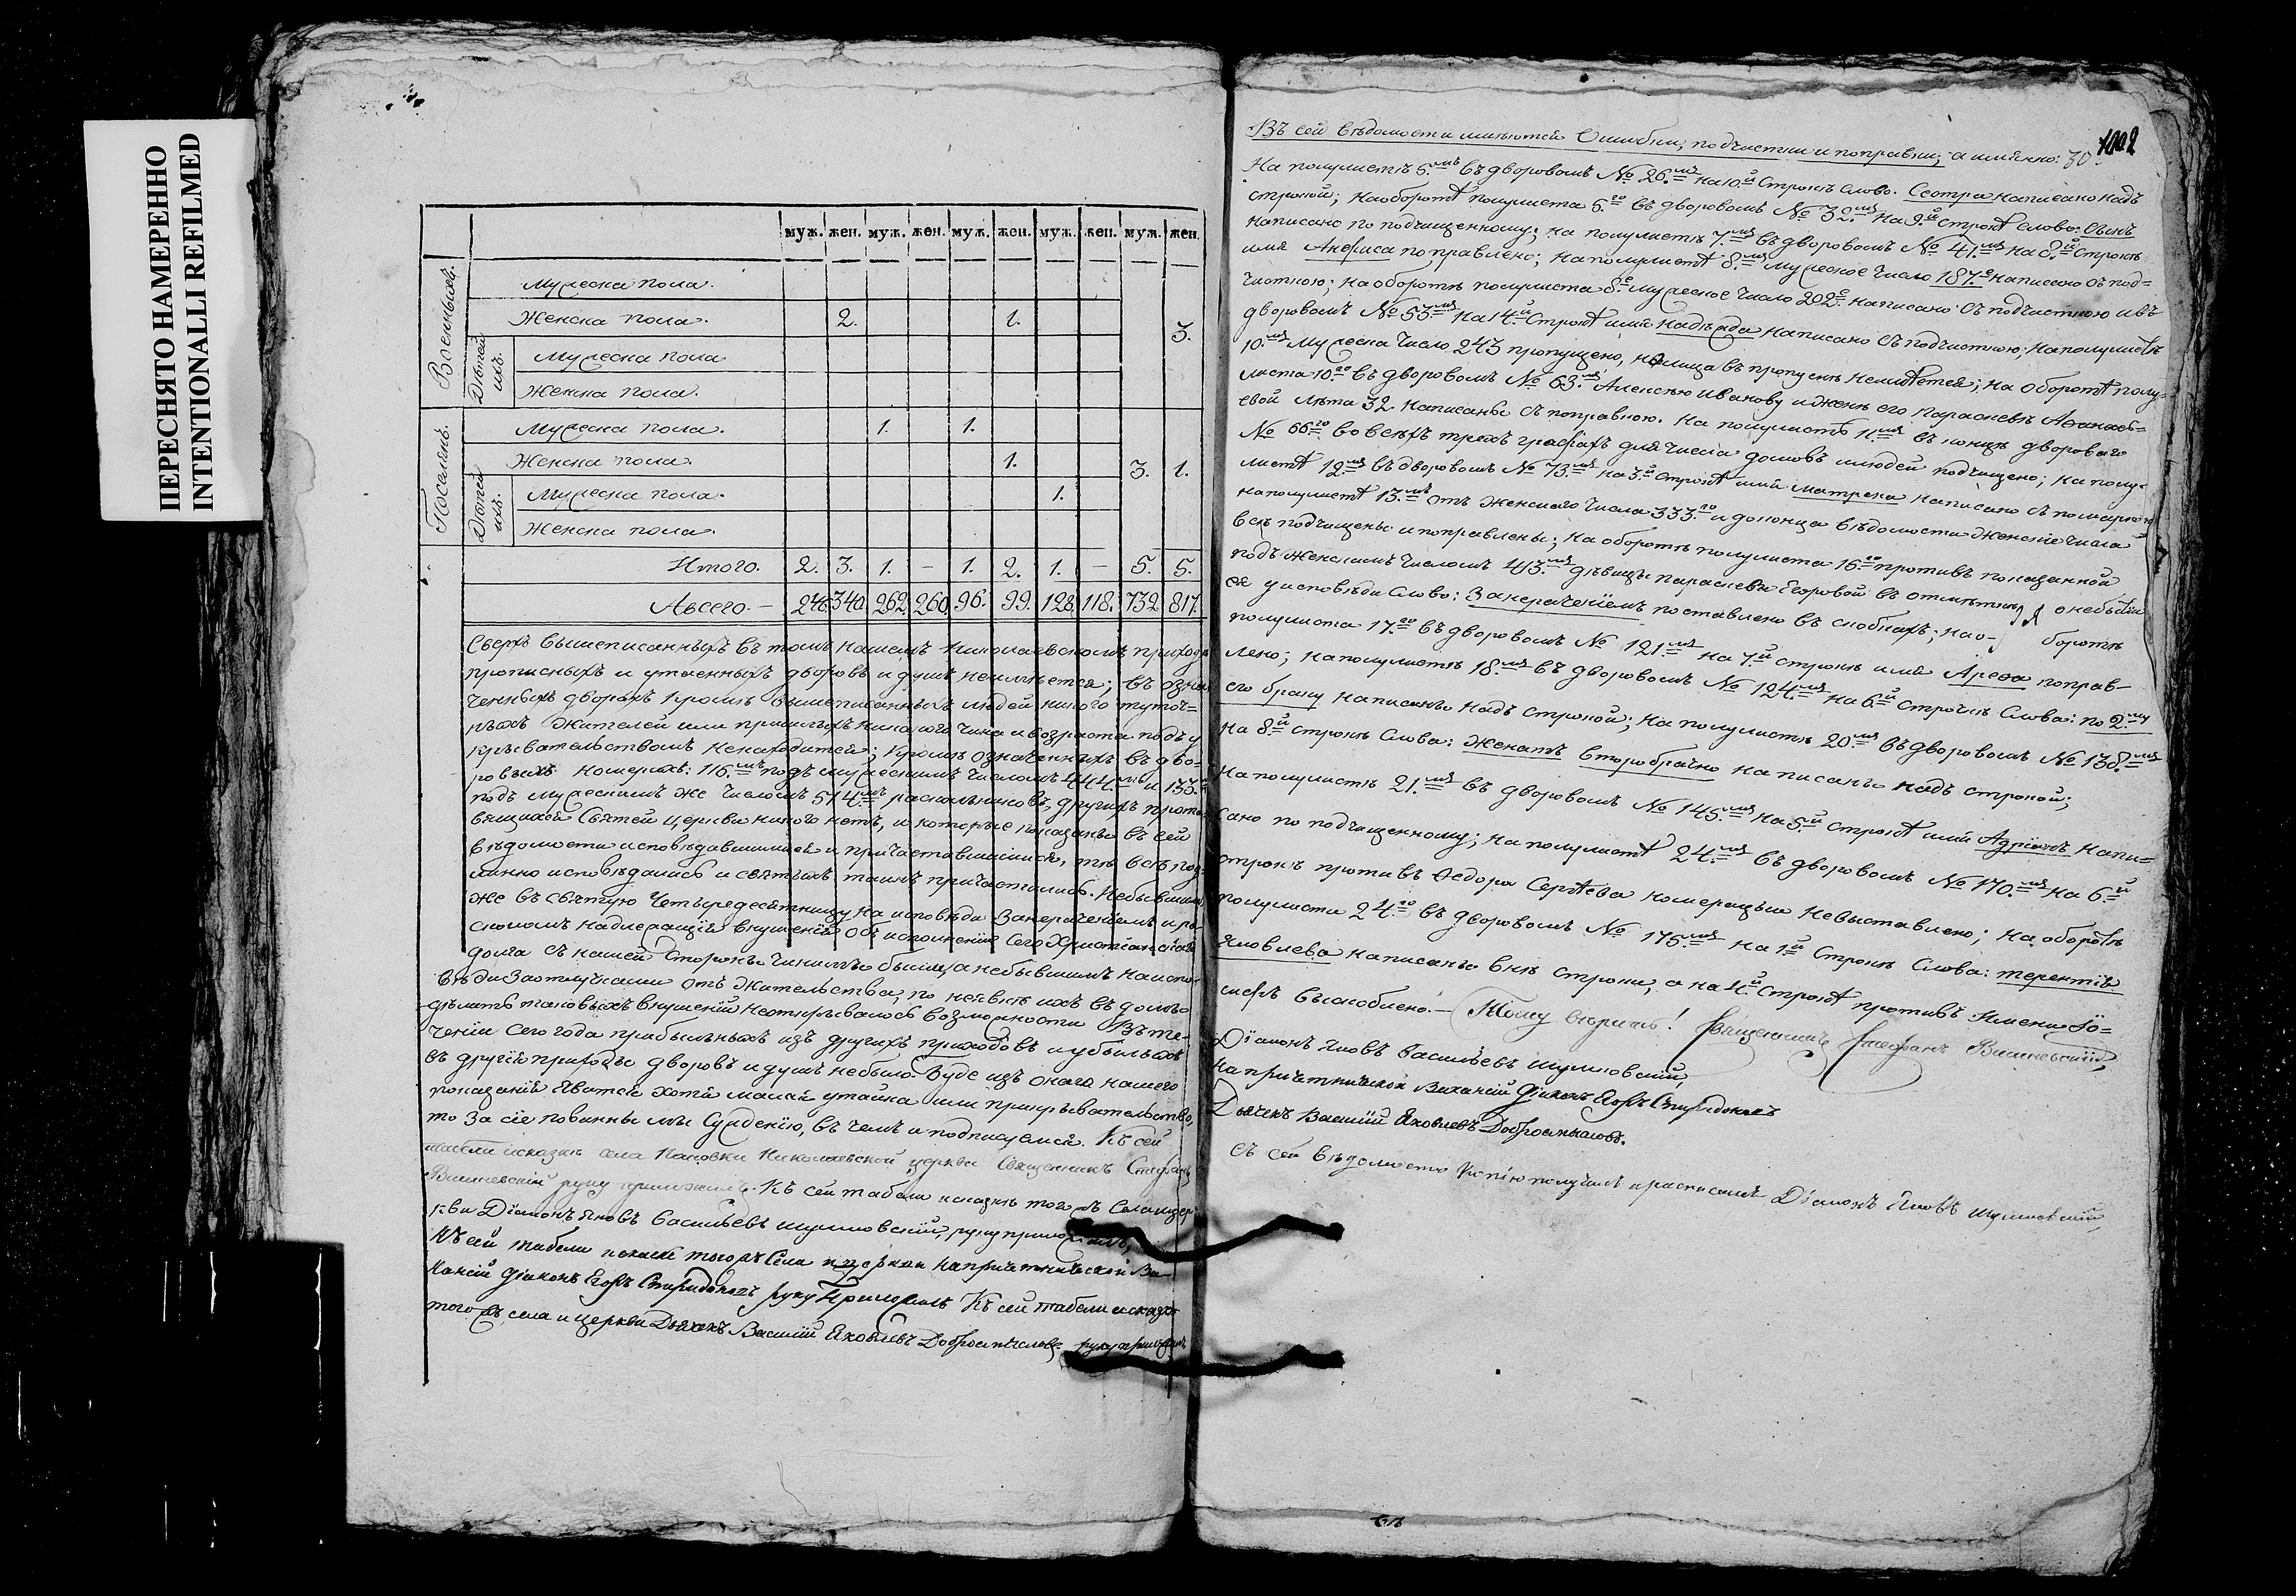 ПЕРЕСНЯТО НАМЕРЕННО
INTENTIONALLI REFILMED
муж. жен. муж. жен. муж. жен. муж. жен. муж. жен.
Военныхъ.
Мужеска пола.
Женска пола. 2. 1. 3.
Дѣтей ихъ.
Мужеска пола
Женска пола.
Посялянъ.
Мужеска пола. 1. 1.
Женска пола. 1. 3. 1.
Дѣтей ихъ.
Мужеска пола. 1.
Женска пола.
Итого. 2. 3. 1. – 1. 2. 1. – 5. 5.
Авсего. – 246. 340. 262. 260. 96. 99. 128. 118. 732. 817.
Сверхъ вышеписанныхъ въ томъ нашемъ Николаевскомъ приходѣ
прописныхъ и утаенныхъ дворовъ и душъ неимѣется; въ озна
ченныхъ дворахъ кромѣ вышеписанныхъ людей никого туточ=
ныхъ жителей или пришлыхъ никакого чина и возраста подъ у
крывательствомъ ненаходится; кромѣ означенныхъ въ дво=
ровыхъ номерахъ: 116.мъ подъ мужескимъ числомъ 444.мъ и 133.
подъ мужескимъ же числомъ 514.мъ раскольниковъ, другихъ проти
вящихся Святей церкви никого нетъ, и которые показаны въ сей
вѣдомости исповѣдавшимися и причаставшимися, тѣ всѣ под=
линно исповѣдались и святыхъ таинъ причастились. Небывшимъ
же въ святую Четыредесятницу на исповѣди занераченіемъ и ра
сколомъ надлежащія внушенія объ исполненіи сего Христіанскаго
долга съ нашей стороны чинимы были, а небывшимъ на испо=
вѣди за отлучками отъ жительства, по неявкѣ ихъ въ домы
дѣлать таковыхъ внушеній неоткрывалось возможности. Въ те=
ченіи сего года прибылыхъ изъ другихъ приходовъ и убылыхъ
въ другіе приходы дворовъ и душъ небыло. Буде изъ онаго нашего
показанія явится хотя малая утайка или прикрывательство,
то за сіе повинны мы сужденію, въ чемъ и подписуемся. Къ сей
табели исказкѣ села Николаевской церкви Священникъ Стефанъ
Вишневскій руку приложилъ. Къ сей табели исказкѣ того жъ села цер
кви Діаконъ Яковъ Васильевъ Шумовскій, руку приложилъ,
Къ сей табели исказке тогожъ села и церкви напричетнической Ва
кансіи діаконъ Егоръ Спиридоновъ руку Приложилъ Къ сей табели исказке
того жъ села и церкви Дьячекъ Василій Яковлевъ Добросмысловъ руку приложилъ
1002
Въ сей вѣдомости имѣются Ошибки, подчистки и поправки, а имянно:
На полулистѣ 5.мъ въ дворовомъ № 26.мъ на 10.й строкѣ слово: Сестра написано надъ
строкой; на оборотѣ полулиста 5.го въ дворовомъ № 32.мъ на 9.й строкѣ слово: сынъ
написано по подчищенному; на полулистѣ 7.мъ въ дворовомъ № 41.мъ на 8.й строкѣ
имя Анфиса поправлено; на полулистѣ 8.мъ мужеское число 187.е написано съ под=
чисткою; на оборотѣ полулиста 8.го мужеское число 202.е написано съ подчисткою и въ
дворовомъ № 53.мъ на 14.й строкѣ имя Надежда написано съ подчисткою; на полулистѣ
10.мъ мужеска число 243 пропущено, но лица въ пропускѣ неимѣется; на оборотѣ полу=
листа 10.го въ дворовомъ № 63.мъ Алексѣю Иванову и женѣ его Парасковьѣ Афанась=
евой лѣта 32 написаны съ поправкою. На полулистѣ 11.мъ въ концѣ двороваго
№ 66.го во всѣхъ трехъ графахъ для числа домовъ и людей подчищено; на полу=
листѣ 12.мъ въ дворовомъ № 73.мъ на 3.й строкѣ имя Матрена написано съ помаркою
на полулистѣ 13.мъ отъ женскаго числа 333.го и доконца вѣдомости женскіе числа
всѣ подчищены и поправлены; на оборотѣ полулиста 16.го противъ показанной
подъ женскимъ числомъ 413.мъ дѣвицы Парасковьи Егоровой въ отмѣткѣ о небытіи
ея у исповѣди слово: Занераченіемъ поставлено въ скобкахъ; на о= боротѣ
полулиста 17.го въ дворовомъ № 121.мъ на 7.й строкѣ имя Арефа поправ=
лено; на полулистѣ 18.мъ въ дворовомъ № 124.мъ на 6.й строчкѣ Слова: по 2.му
его браку написаны надъ строкой; на полулистѣ 20.мъ въ дворовомъ № 138.мъ
на 8.й строкѣ Слова: женатъ второбрачно написаны надъ строкой;
на полулистѣ 21.мъ въ дворовомъ № 145.мъ на 5.й строкѣ имя Адріанъ напи=
сано по подчищенному; на полулистѣ 24.мъ въ дворовомъ № 170.мъ на 6.й
строкѣ противъ Ѳедора Сергѣева номерацыи невыставлено; на оборотѣ
полулиста 24.го въ дворовомъ № 175.мъ на 1.й строкѣ Слова: терентій
Яковлева написаны внѣ строки, а на 4.й строкѣ противъ имени Іо=
сифъ выскоблено. – Тому вѣрить! Священникъ Стефанъ Вишневскій,
Діаконъ Яковъ Васильевъ Шумовскій,
На причетнической Вакансіи діаконъ Егоръ Спиридоновъ
Дьячекъ Василій Яковлевъ Добросмысловъ.
Съ сей вѣдомости копію получилъ и росписался Діаконъ Яковъ Шумовскій,